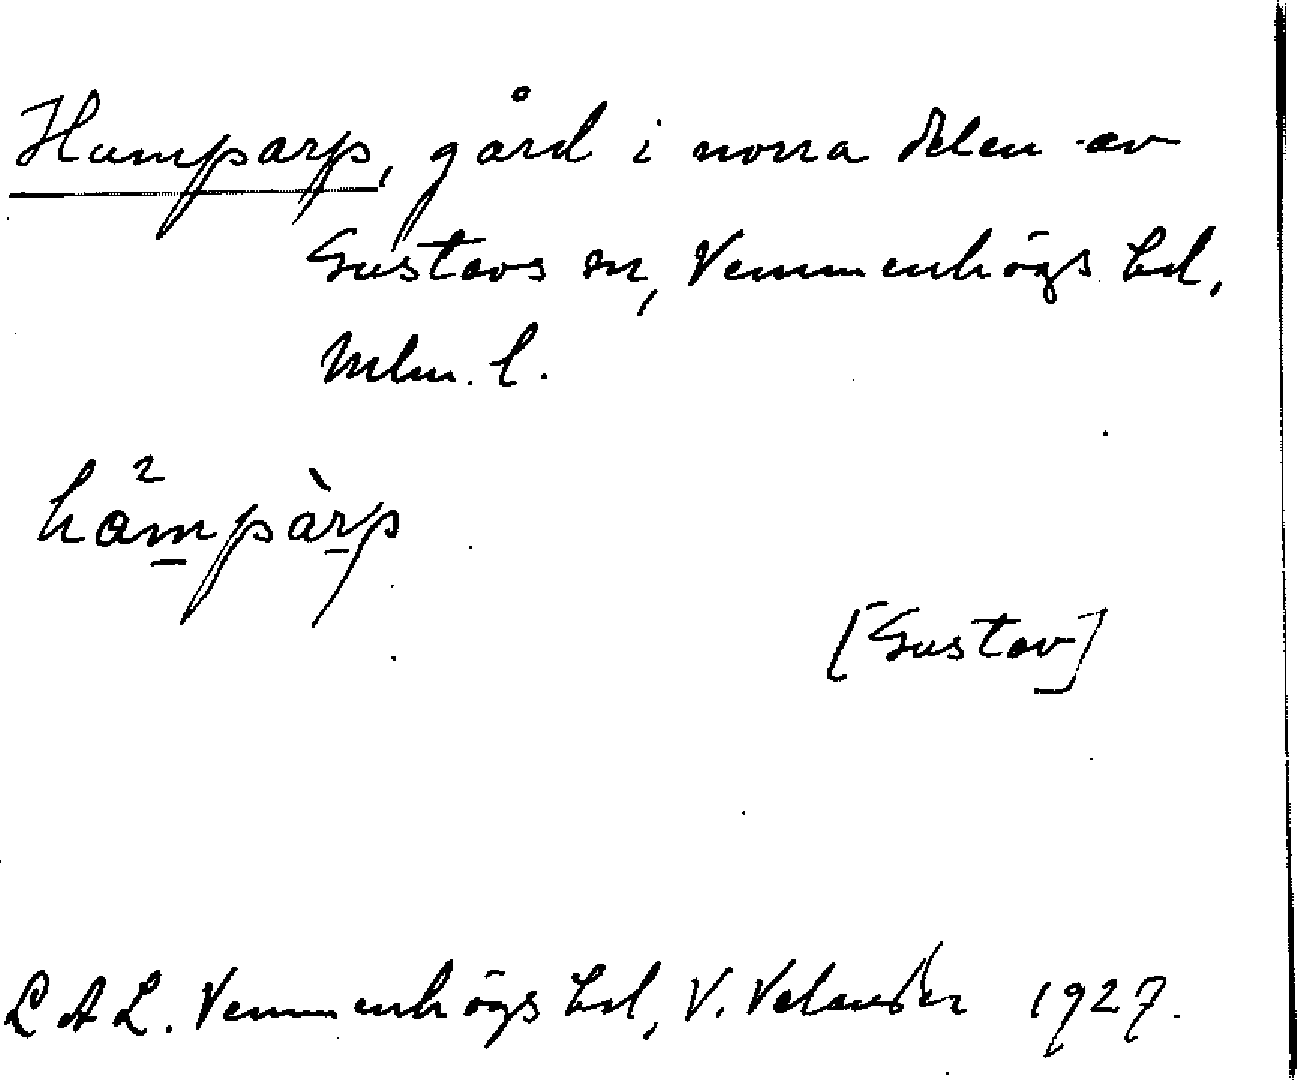 Hamparp, gård i norra delen av
Gustavs sn, Vemmenhögs hd,
Mlm. l.
ha²mpàrp
[Gustav]
L A L. Vemmenhögs hd, V. Velander 1927.